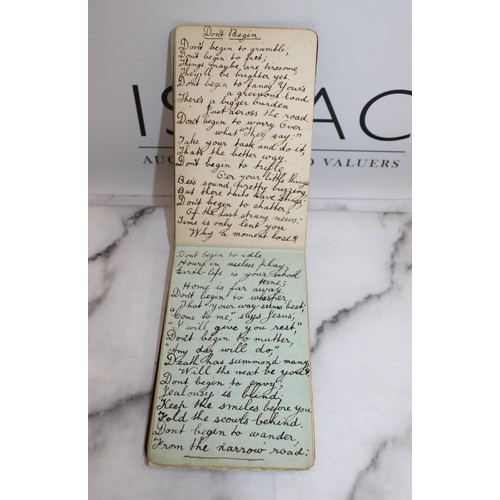 Don't Begin.
Don't begin to grumble;
Don't begin to fret;
Things maybe, are tiresome,
They'll be brighter yet.
Don't begin to fancy Your's
a greivious load
There's a bigger burden
Just across the road.
Don't begin to worry Over
what "They say:"
Take your task and do it,
That's the better way.
Don't begin to trifle
O'er your little things
Bees sound pretty buzzing,
But there tails have stings.
Don't begin to chatter;
Of the last strang news;
Time is only lent you
Why a moment lose?
IS AC
AUC D VALUERS
Dont begin to idle,
Hours in useless play,
Earth-life is your school
time;
Home is far away.
Don't begin to whisper
"That your way seems best;
"Come to me," says Jesus;
"I will give you rest,"
Don't begin to mutter,
"Any day will do,"
Death has summond many
Will the next be you?
Dont begin to envy;
Jealousy is blind,
Keep the smiles before you
Fold the scowls behind.
Dont begin to wander,
From the narrow road;